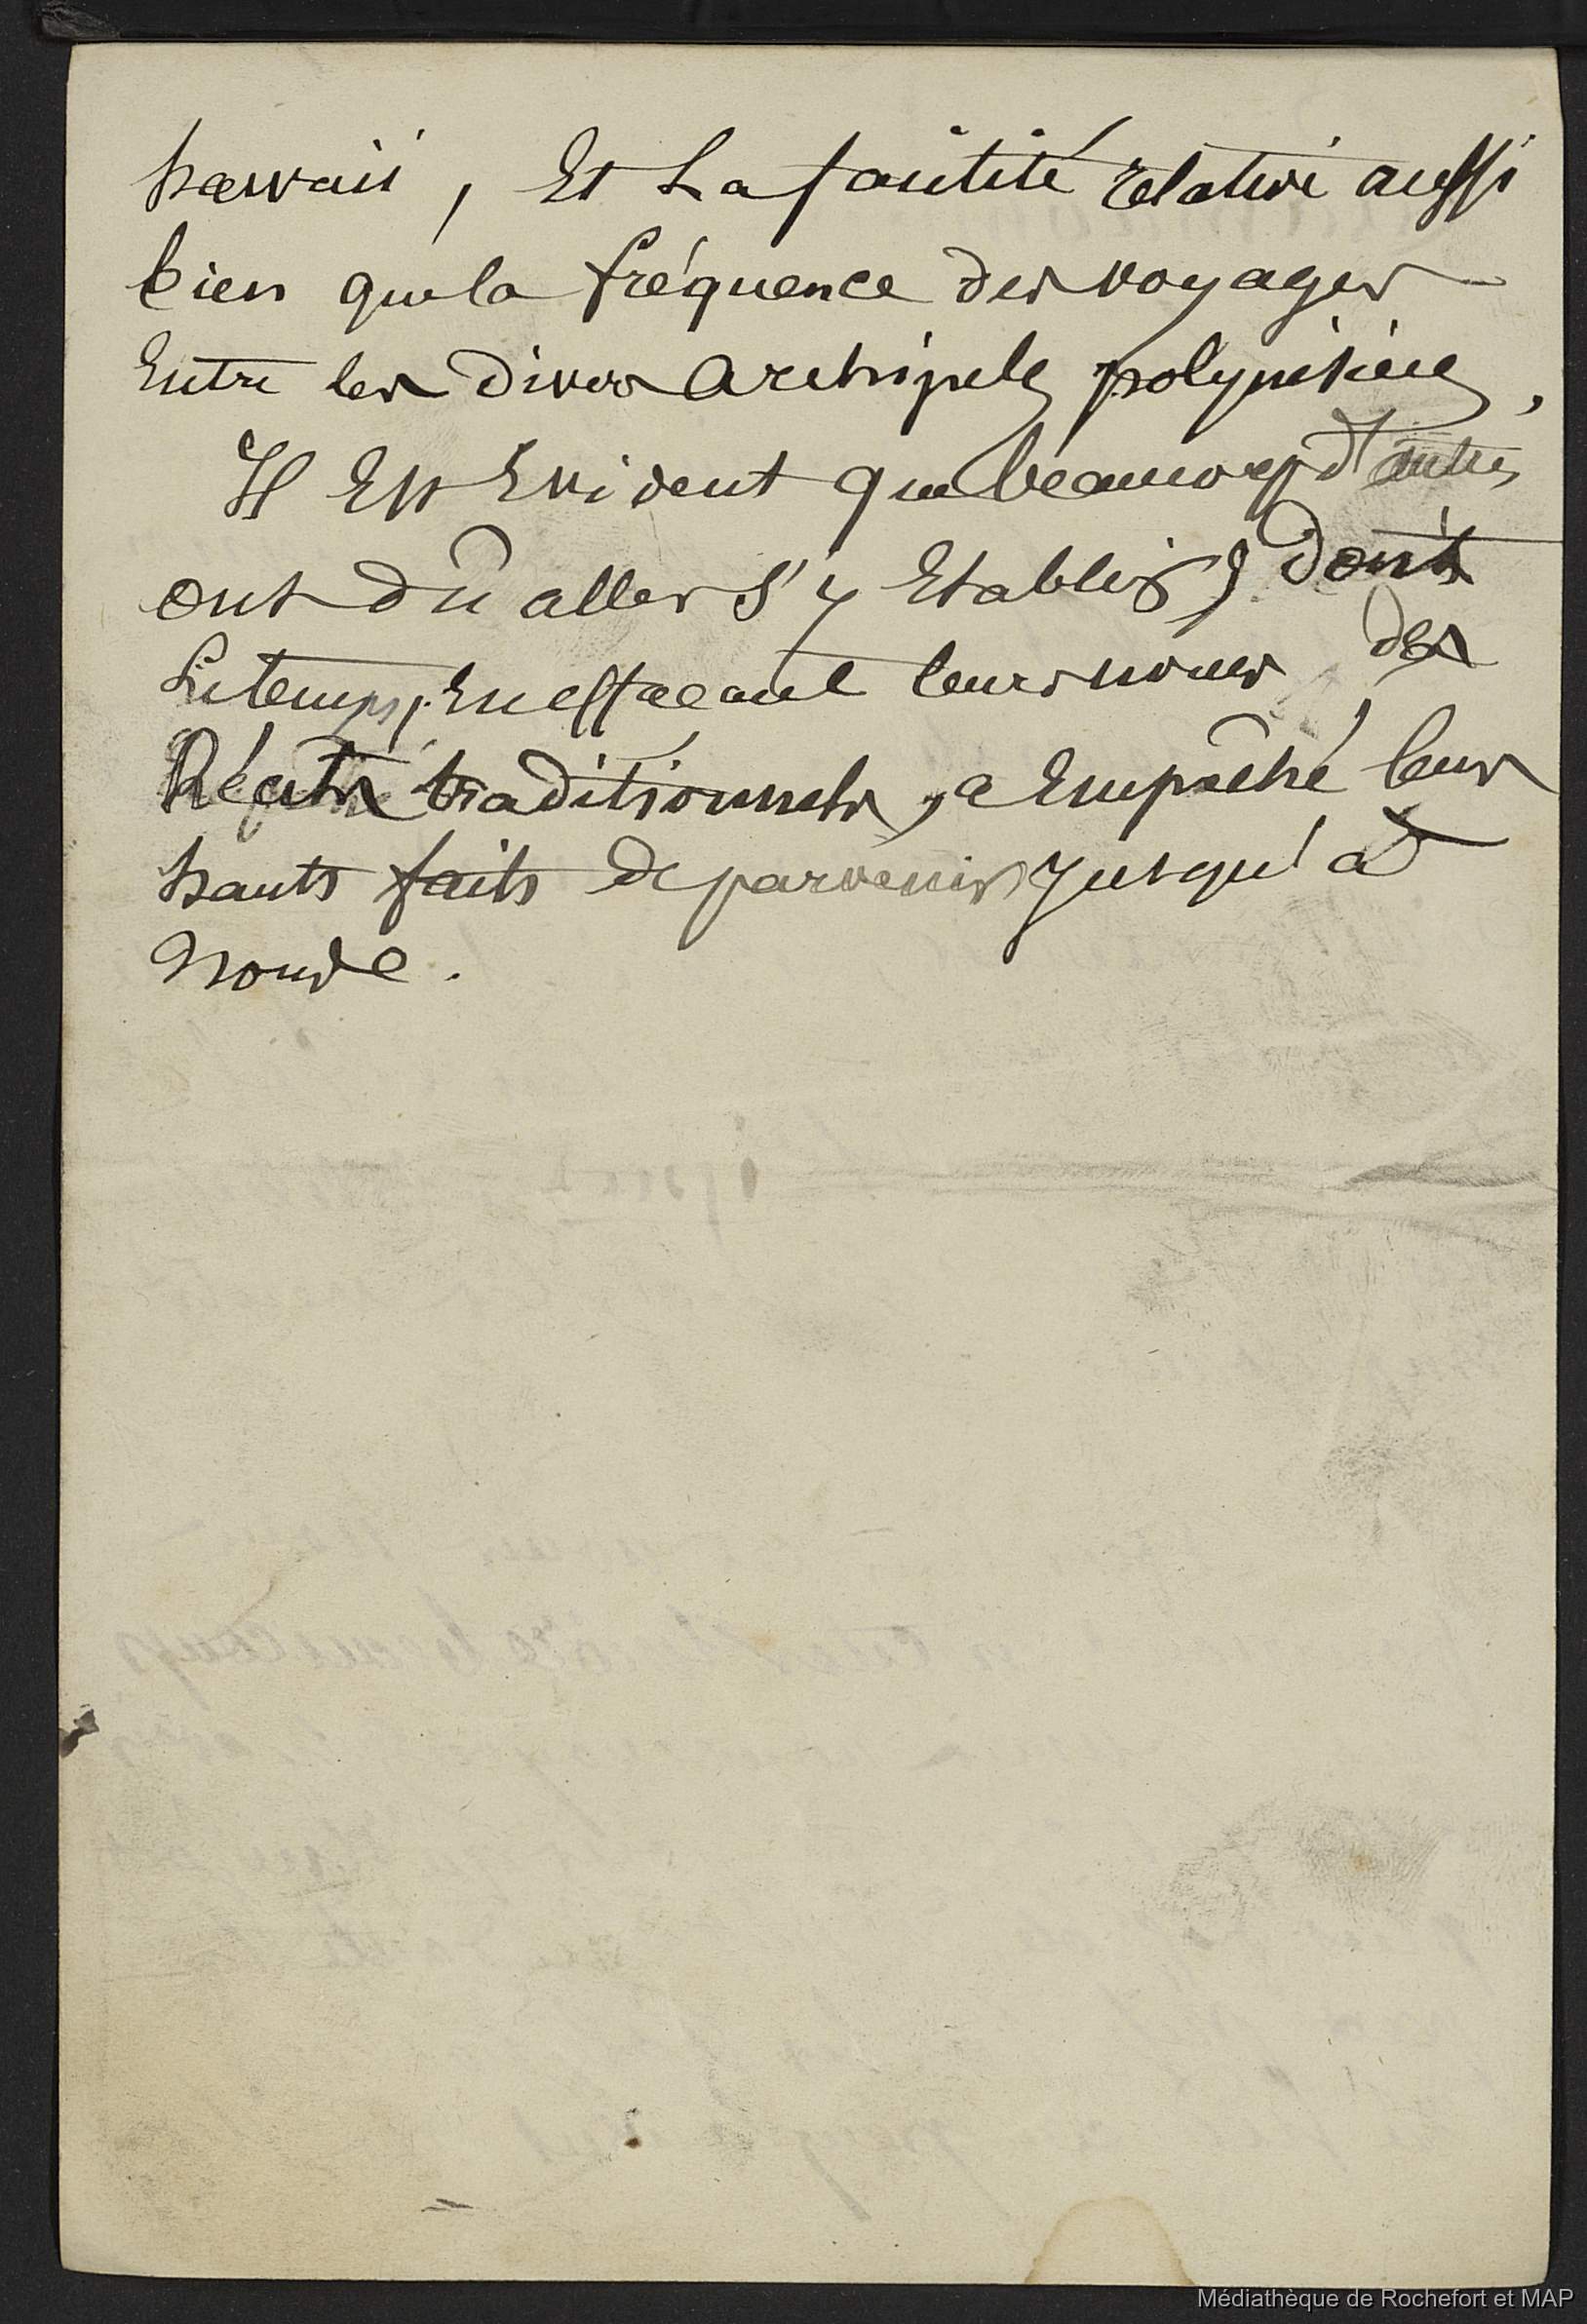 hawaii, Et La facilité relative aussi
bien que la fréquence des voyages
Entre les divers archipels polynésiens,
Il Est Evident que beaucoup d'autres
ont dû aller s'y Etablir, dont
Le temps, En effaçant leurs noms des
Récits traditionnels, a Empêché leurs
hauts faits de parvenir jusqu'à
nous.
Médiathèque de Rochefort et MAP